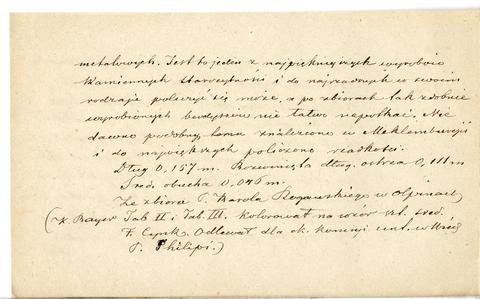 metalowych. Jest to jeden z najpiękniejszych wyrobów
kamiennych starożytności i do najrzadszych w swoim
rodzaju policzyć się może, a po zbiorach tak zdobnie
wyrobionych bowiem nie łatwo napotkać. Nie
dawno podobny temu znaleziono w Meklemburgii
i do największych policzono rzadkości.
Dług 0,157 m. Brzewnięta dług. ostrza 0,111 m
Śred. obucha 0,046 m.
Ze zbioru P. Karola Rogawskiego w Ołpinach
(x. Bayer Tab II i Tab. III. kolorował na wzór st. śred.
F. Cynk. Odlewał dla ck. komisyi cent. w
P. Philipi.)